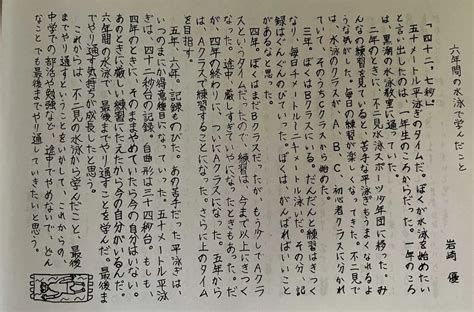 六年間の水泳で学んだこと
岩崎 優
「四十二、七秒」
五十メートル平泳ぎのタイムだ。ぼくが水泳を始めたい
と言い出したのは、一年生のころからだった。一年のころ
は、黒潮の水泳教室に通
二年のときに、不二見水泳スポーツ少年団に移った。み
んなの練習を見ていると、
うなれるがした。毎日の練習が楽
水泳のクラスが、A、B、C、初心者クラスに分かれ
ていて、そのB
三年。ぼくはBクラスにいる。だんだんと練習はきつく
なり、毎日千メートル 泳いだ。その分、記
録はぐんぐんのびていった。ぼくは、がんばればいいこ
とがあるなと思った。
四年。ぼくはまだBクラスだったが、もう少しでAクラ
スというタイムだったので、練習は、今まで以上にきつく
なった。途中、厳しすぎていやになったときもあった。だ
が、四年の終わりに、ついにAクラスになった。五年から
は、Aクラスで練習することになった。さらに上のタイム
を目指す。
五年、六年。記録ものびた。あの苦手だった平泳ぎは、
いつのまにか得意種目になっていた。五十メートル平泳
ぎは、四十二秒台の記録。自由形は三十四秒台。もしも、
四年のときに、そのままやめていたら今の自分はいない。
あのときに厳しい練習にたえたから今の自分がいるんだ。
六年間の水泳で、最後までやり通すことを学んだ。最後ま
でやり通す気持ちが成長したと思う。
これからは、不二見の水泳から学んだこと、最後
までやり通すということをいかして、これからの、
中学での部活や勉強など、途中でやめないで、どん
なことも最後までやり通していきたいと思う。